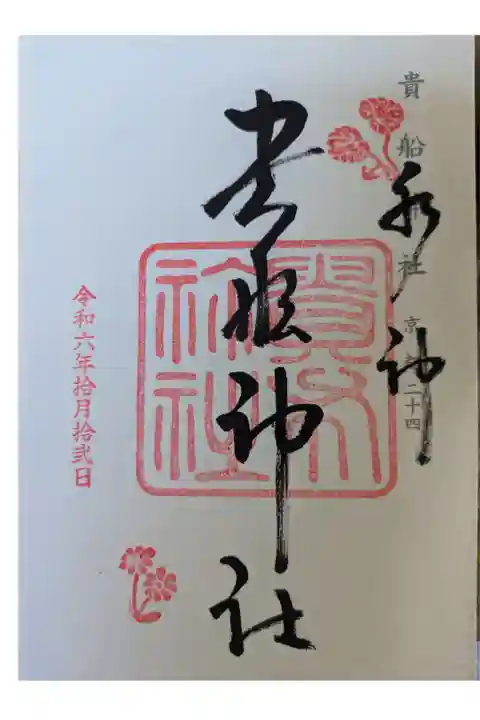 貴船神社 京都二十四
水神
貴船神社
令和六年拾月拾弐日